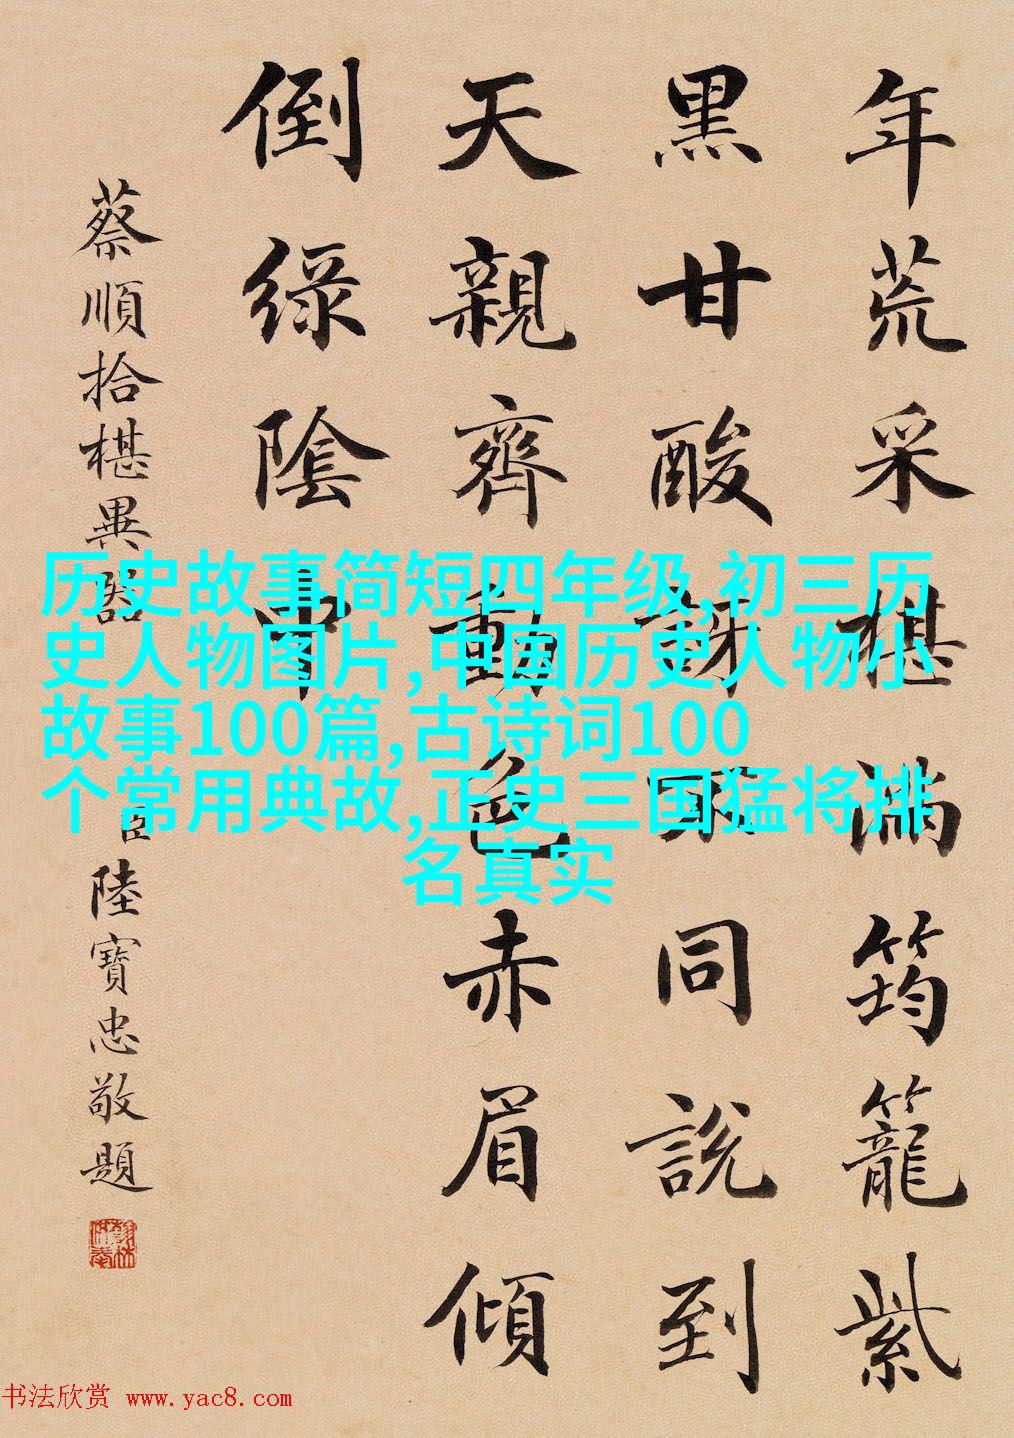 年荒采椹滿筠籠紫
黑甘酸訝同說到
天親齊動色赤眉傾
倒綠陰中
蔡順拾椹異器
臣陸寶忠敬題
历史故事简短四年级,初三历
史人物图片,中国历史人物小
故事100篇,古诗词100
个常用典故,正史三国猛将排
名真实
书法欣赏 www.yac8.com